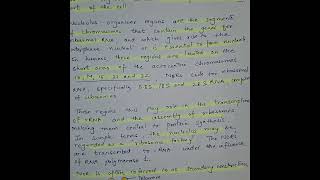 of the cell
Nucleolus organiser regions are the segments
of chromosomes that contain the genes for
ribosomal RNA and which gives rise to the
interphase nucleoli or is essential to form nucleoli
In humans these regions are located on the
short arms of the acrocentric chromosomes
13, 14, 15, 21 and 22. NORs code for ribosomal
RNA, specifically 5.8S, 18S and 28S rRNA
of ribosomes
These regions thus play role in the transcription
of rRNA and the assembly of ribosomes
making them central to protein synthesis.
In simple terms, the nucleolus may be
regarded as a "ribosome factory". The NORs
are transcribed to RNA under the influence
of RNA polymerase I.
NOR is often referred to as secondary constriction